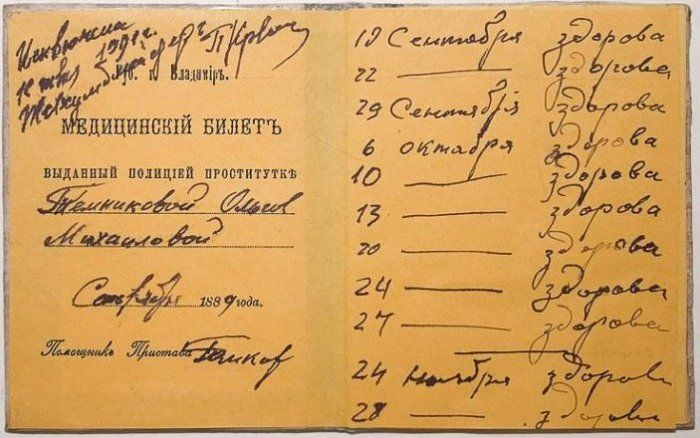 Губ. г. Владиміръ.
МЕДИЦИНСКІЙ БИЛЕТЪ
ВЫДАННЫЙ ПОЛИЦІЕЙ ПРОСТИТУТКѢ
Темниковой Ольгѣ
Михайловой
Сентября 1889 года.
Помощникъ Пристава
19 Сентября здорова
22 — здорова
29 Сентября здорова
6 октября здорова
10 — здорова
13 — здорова
20 — здорова
24 — здорова
27 — здорова
24 ноября здорова
28 — здорова